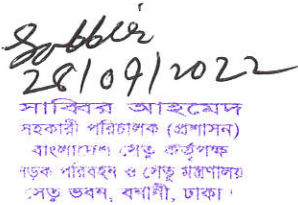 Sabbir
28/09/2022
সাব্বির আহমেদ
সহকারী পরিচালক (প্রশাসন)
বাংলাদেশ সেতু কর্তৃপক্ষ
সড়ক পরিবহন ও সেতু মন্ত্রণালয়
সেতু ভবন, বনানী, ঢাকা।